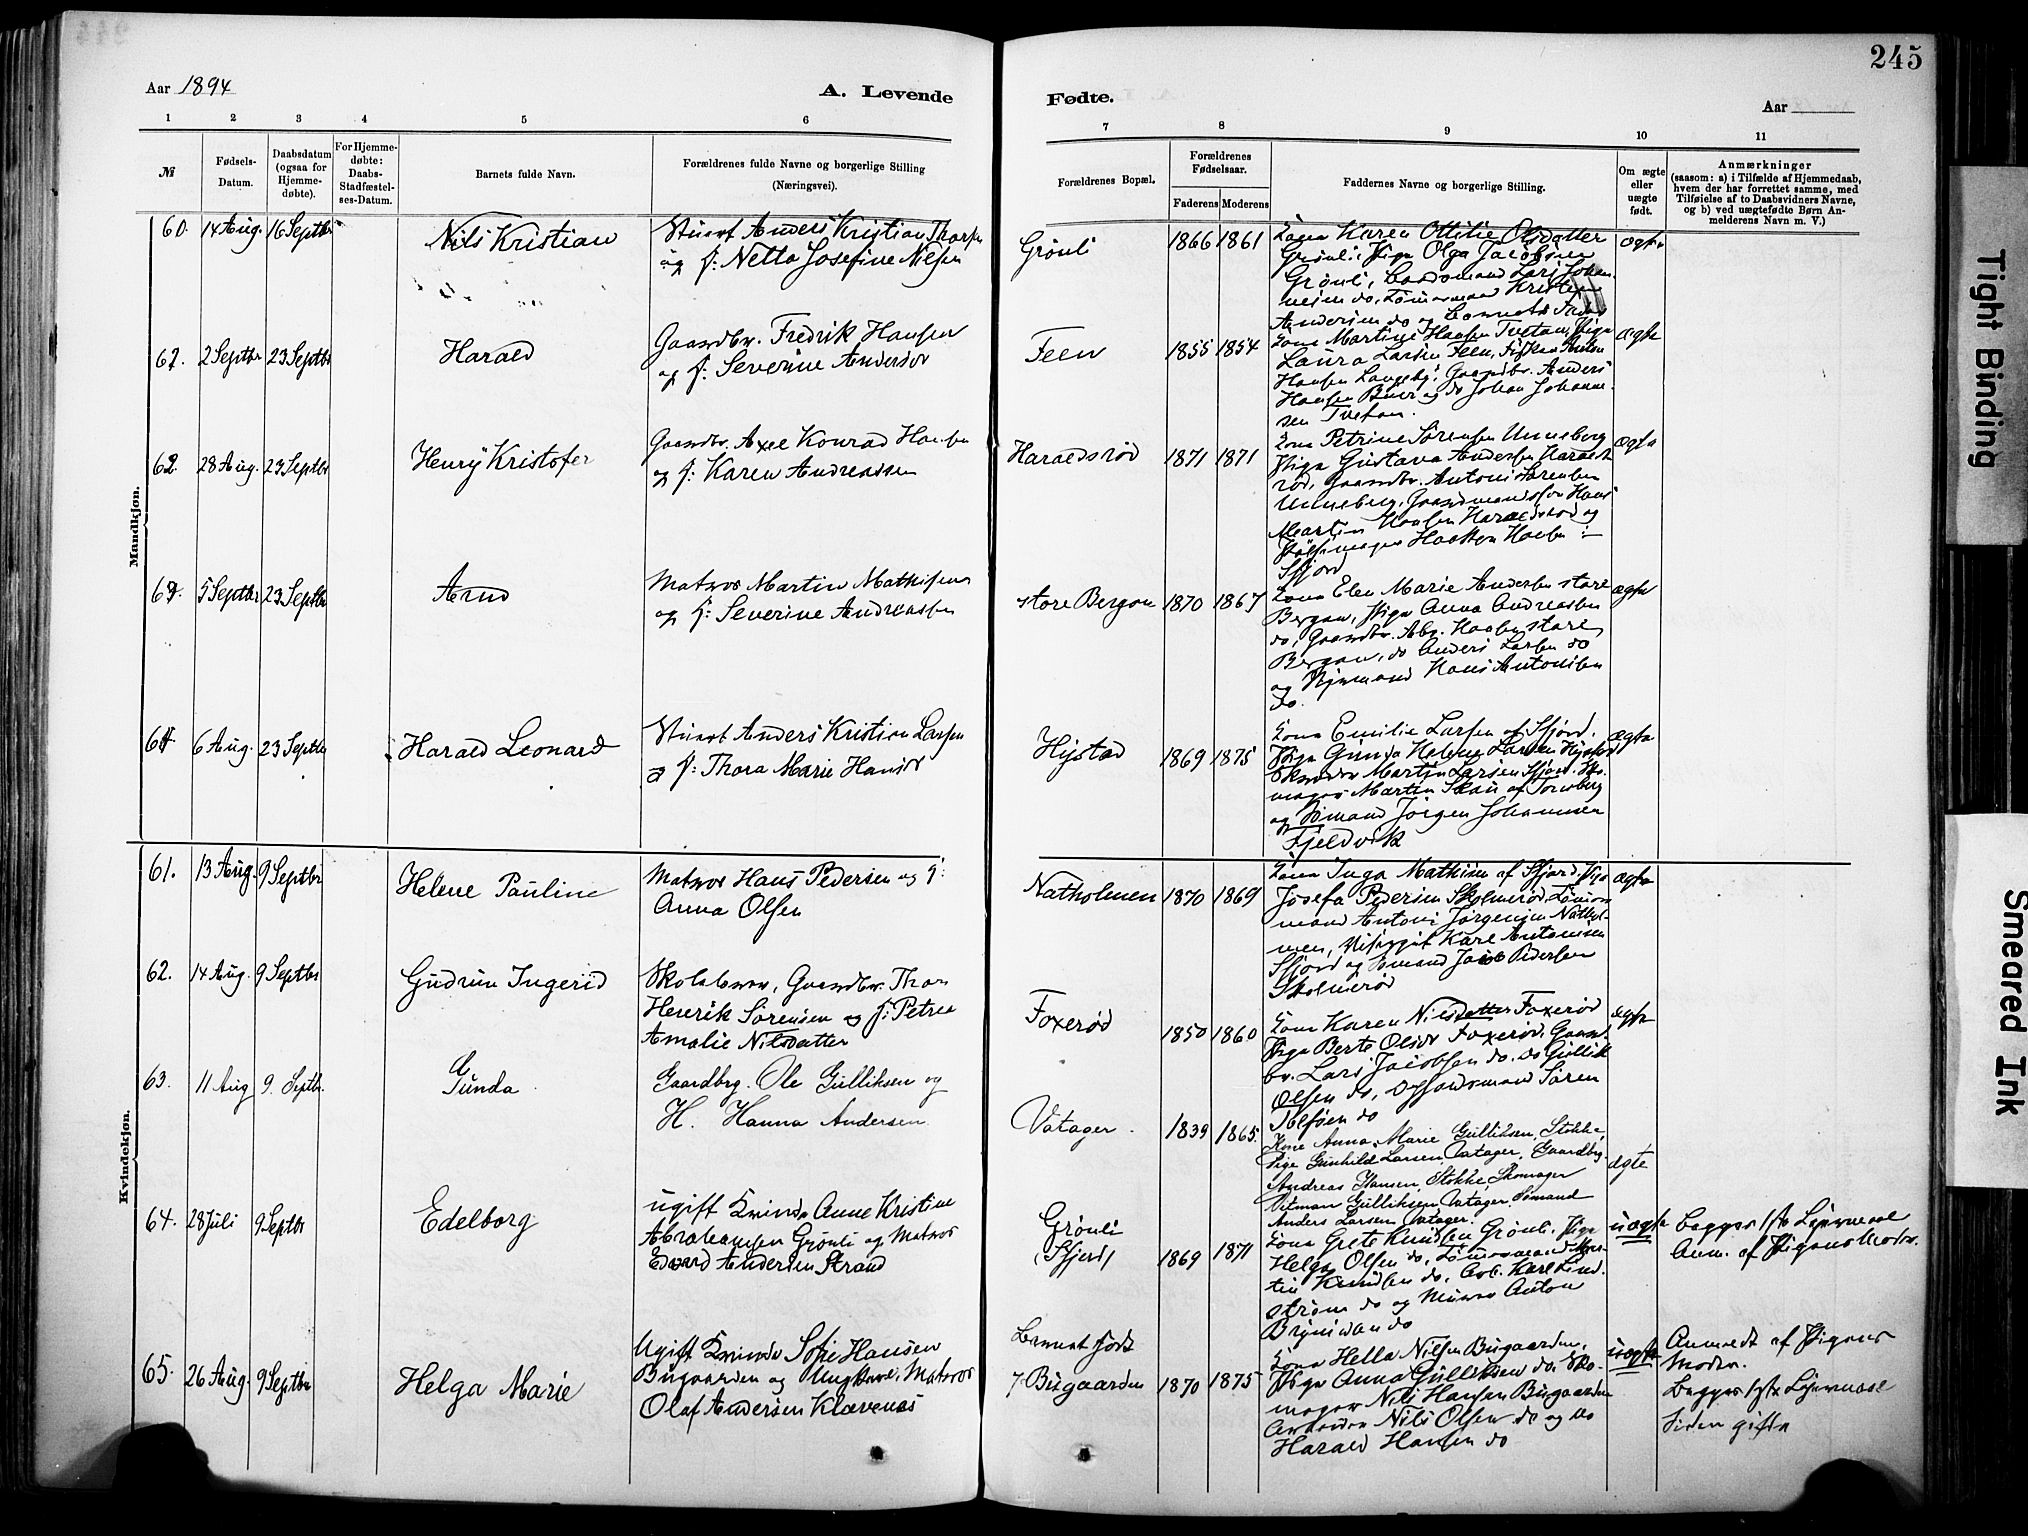 245
Aar 1894
A. Levende
Fødte.
Aar
1 2 3 4 5 6 7 8 9 10 11
№
Fødsels-
Datum.
Daabsdatum
(ogsaa for
Hjemme-
døbte).
For Hjemme-
døbte:
Daabs-
Stadfæstel-
ses-Datum.
Barnets fulde Navn.
Forældrenes fulde Navne og borgerlige Stilling
(Næringsvei).
Forældrenes Bopæl.
Forældrenes
Fødselsaar.
Faderens Moderens
Faddernes Navne og borgerlige Stilling.
Om ægte
eller
uægte
født.
Anmærkninger
(saasom: a) i Tilfælde af Hjemmedaab,
hvem der har forrettet samme, med
Tilføielse af to Daabsvidners Navne,
og b) ved uægtefødte Børn An-
melderens Navn m. V.)
Mandkjøn.
60. 14 Aug. 16 Septbr
Nils Kristian
Anders Kristian Thorsen
og H: Netta Josefine Nilsen
Grønli
1866 1861
Kona Karen Ottilie Olsdatter
Grønli, Pige Olga Jacobsen
Grønli, Baadsmand Lars Johan
Andersen do og Barnets Fader
ægte
2 Septbr 23 Septbr
Harald
Gaardbr. Fredrik Hansen
og H: Severine Andersdr
Feen
1855 1854
Kona Martine Hansen Tvetan, Pige
Laura Larsen Feen, Fisker Anton
Hansen Gaardbr. Anders
Hansen og do Johan Johanne-
sen Tvetan.
ægte
62. 28 Aug. 23 Septbr
Henry Kristofer
Gaardbr. Axel Konrad Hansen
og H: Karen Andreassen
Haraldsrød
1871 1871
Kona Petrine Sørensen Unneberg
Pige Gustava Andersen Haralds-
rød, Gaardbr. Antoni Sørensen
Unneberg, Gaardmandssøn Hans
Martin Hansen Haraldsrød og
Pølsemager Haakon Hansen i
Sfjord
ægte
5 Septbr 23 Septbr
Arnt
Matros Martin Mathisen
og H: Severine Andreassen
store Bergan
1870 1867
Kona Elen Marie Andersen store
Bergan, Pige Anna Andreassen
do, Gaardbr. Abr. Hansen store
Bergan, do Anders Larsen do
og Styrmand Hans Antonisen
do.
ægte
64. 6 Aug. 23 Septbr
Harald Leonard
Anders Kristian Larsen
og H: Thora Marie Hansdr
Hystad
1869 1875
Kona Emilie Larsen af Sfjord.
Pige Gunda Helene Larsen Hystad
Martin Larsen Sfjord, Sko-
mager Martin Skau af Tønsberg
og Sømand Jørgen Johannesen
Fjeldvik
ægte
Kvindekjøn.
61. 13 Aug. 9 Septbr
Helene Pauline
Matros Hans Pedersen og H:
Anna Olsen
Natholmen
1870 1869
Kona Inga Mathisen af Sfjord, Pige
Josefa Pedersen Skolmerød, Tømmer-
mand Antoni Jørgensen Nathol-
men, Karl Antonisen
Sfjord og Sømand Jacob Pedersen
Skolmerød
ægte
62. 14 Aug. 9 Septbr
Gudrun Ingerid
Skolelærer, Gaardbr. Thor
Henrik Sørensen og H: Petrea
Amalie Nilsdatter
Foxerød
1850 1860
Kona Karen Nilsdatter Foxerød
Pige Berte Olsdr Foxerød, Gaard-
br. Lars Jacobsen do. do Gullik
Olsen do, Opsidsmand Søren
do
ægte
63. 11 Aug 9. Septb.
Gunda
Gaardbrg. Ole Gulliksen og
H. Hanna Andersen
Vatager.
1839 1865.
Kone Anna Marie Gulliksen, Stokke,
Pige Gunhild Larsen Vatager, Gaardbrg.
Andreas Hansen, Stokke, Skomager
Gulliksen Vatager, Sømand
Anders Larsen Vatager.
ægte
64. 28 Juli 9 Septbr
Edelborg
ugift Kvinde Anne Kristine
Abrahamsen Grønli og Matros
Edvard Andersen Strand
Grønli
(Sfjord)
1869 1871
Kona Grete Knudsen Grønli, Pige
Helga Olsen do, Tømmermand Mar-
tin Knudsen do, Arb. Karl Lind-
strøm do og Murer Anton
do
uægte
Begges 1ste Leiermaal
Anm. af Pigens Moder.
65. 26 Aug. 9 Septbr
Helga Marie
Ugift Kvinde Sofie Hansen
Bugaarden og Ungkarl, Matros
Olaf Andersen Klavenæs
Barnet født
i Bugaarden
1870 1875
Kona Hella Nilsen Bugaarden,
Pige Anna Gulliksen do, Sko-
mager Nils Hansen Bugaarden
Arbeider Nils Olsen do og do
Harald Hansen do
uægte
Anmeldt af Pigens
Moder.
Begges 1ste Leiermaal
Siden gifte
Tight Binding
Smeared Ink